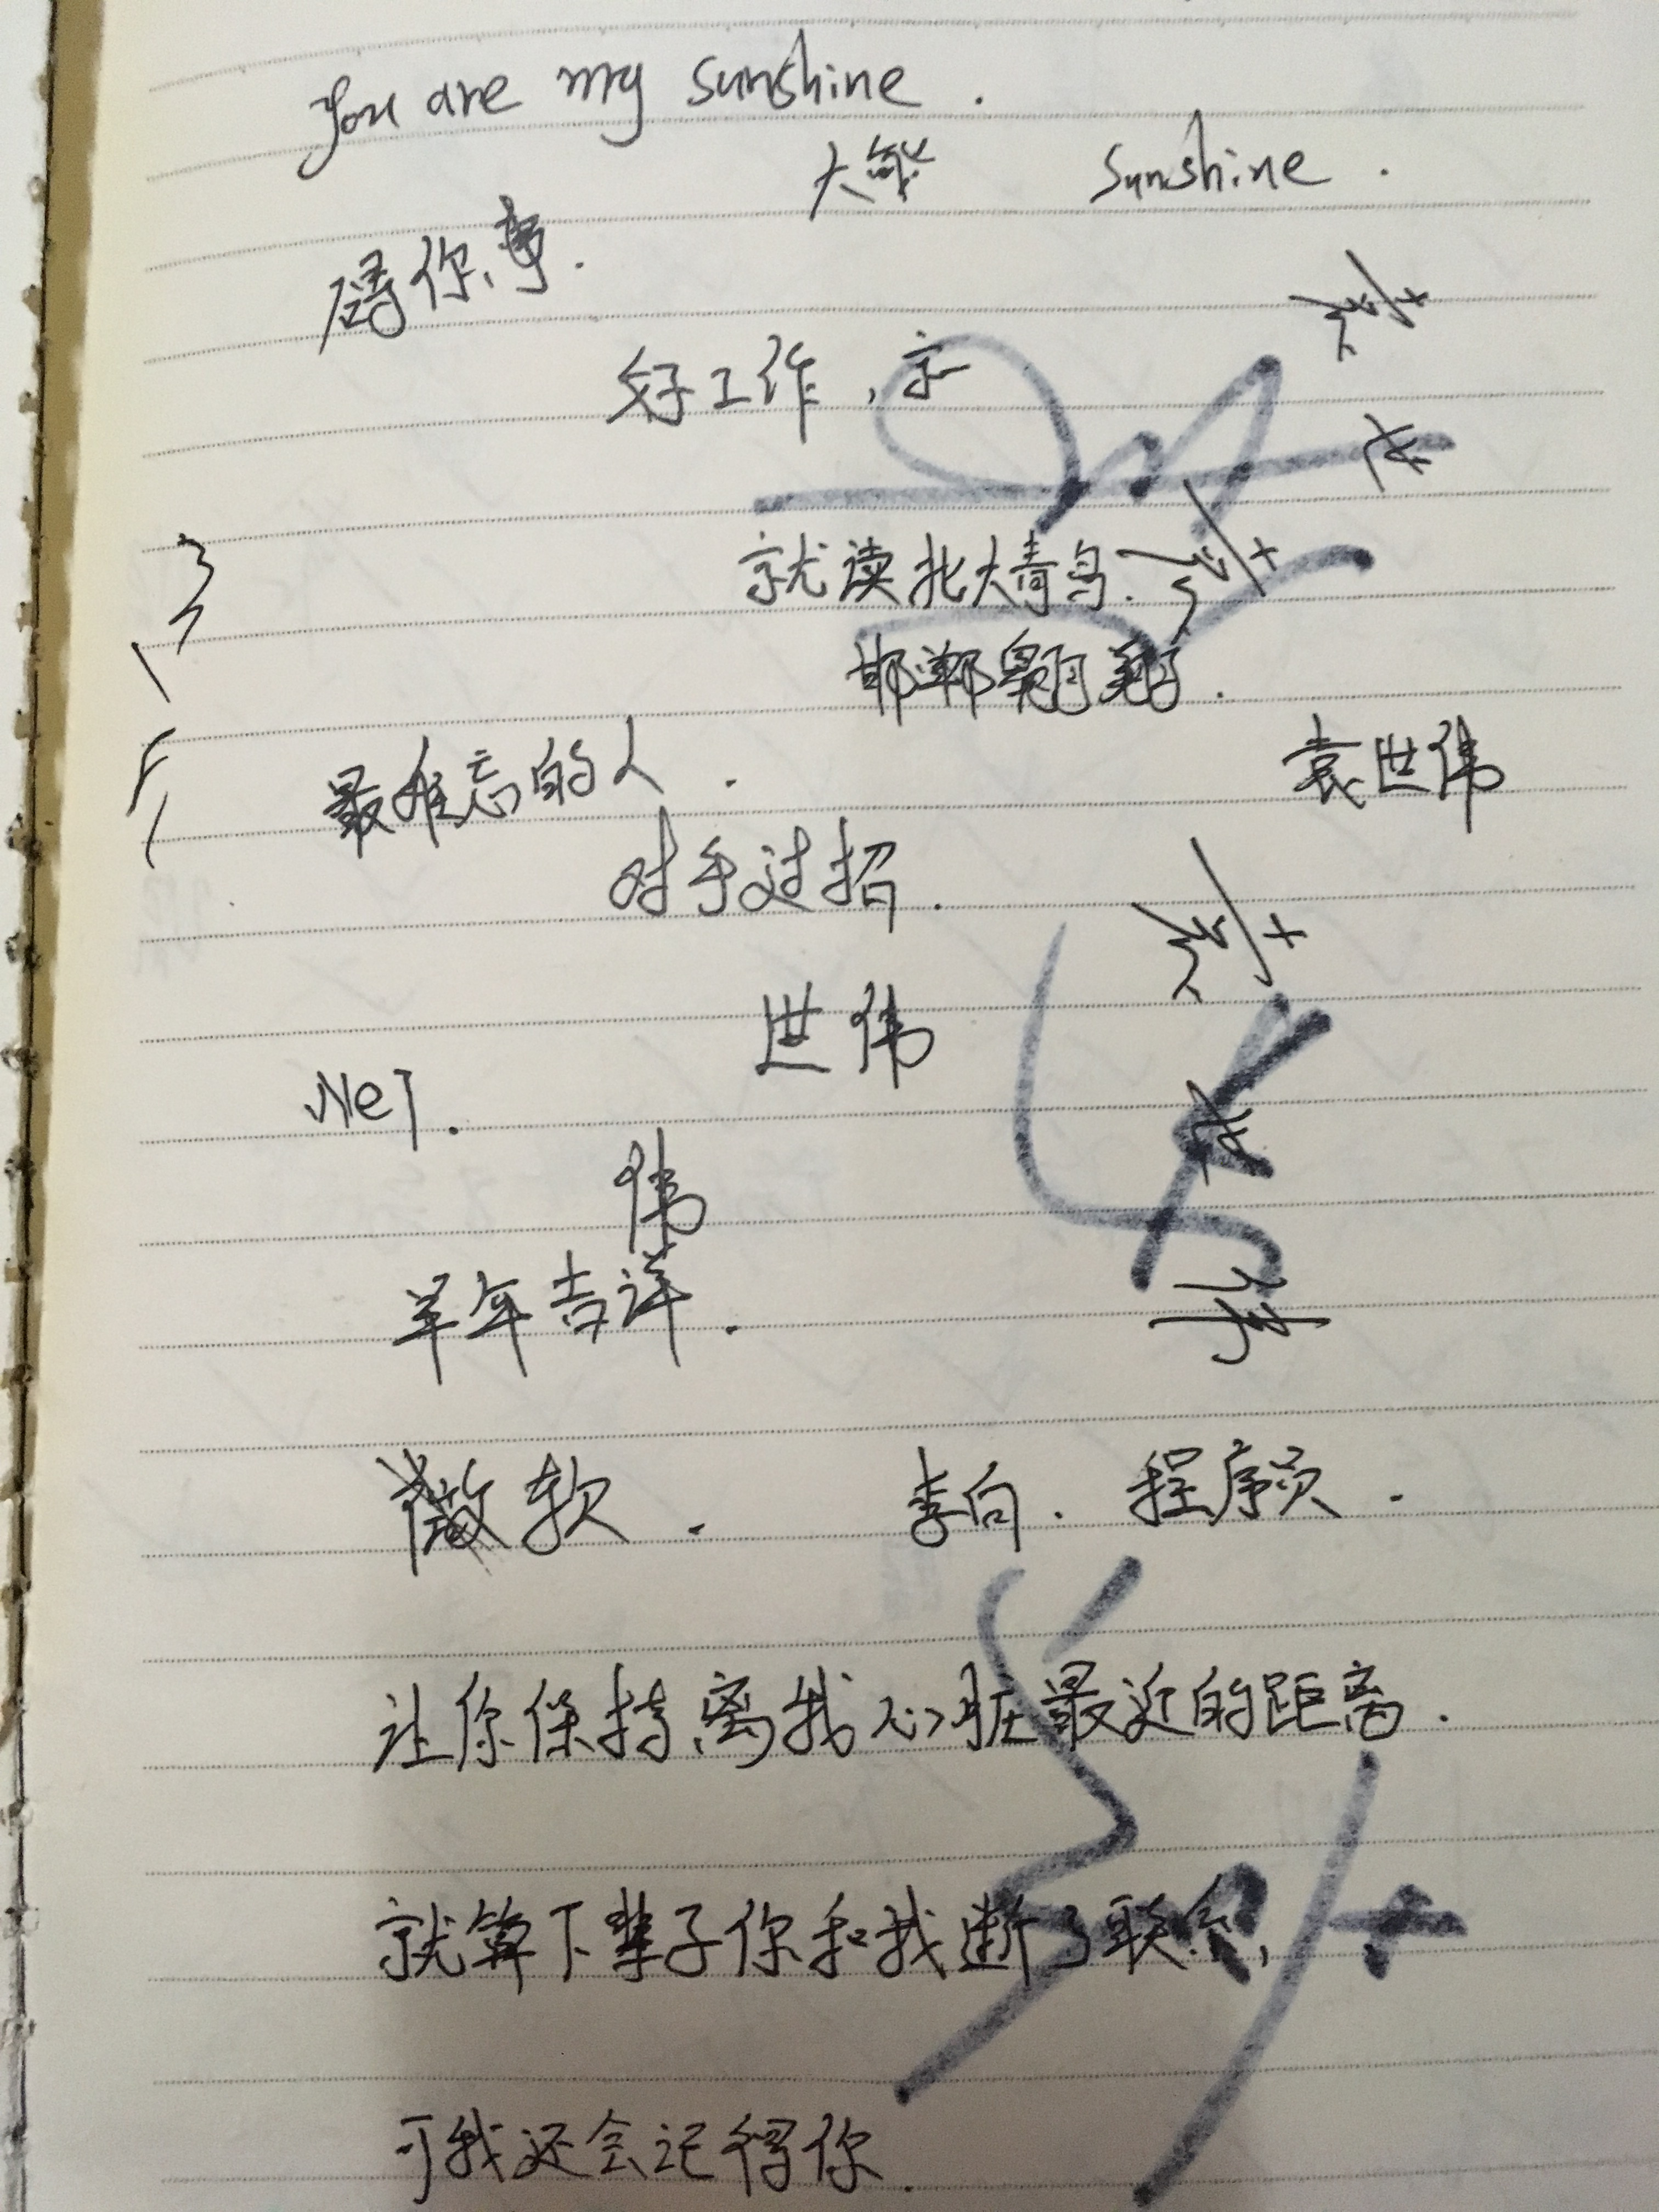 you are my sunshine.
sunshine.
碍你事.
好工作,
就读北大青鸟.
邯郸翱翔.
袁世伟
最难忘的人.
对手过招.
世伟
Net.
伟
羊年吉祥.
微软. 李向. 程序员.
让你保持离我心脏最近的距离.
就算下辈子你和我断了联系,
可我还会记得你.